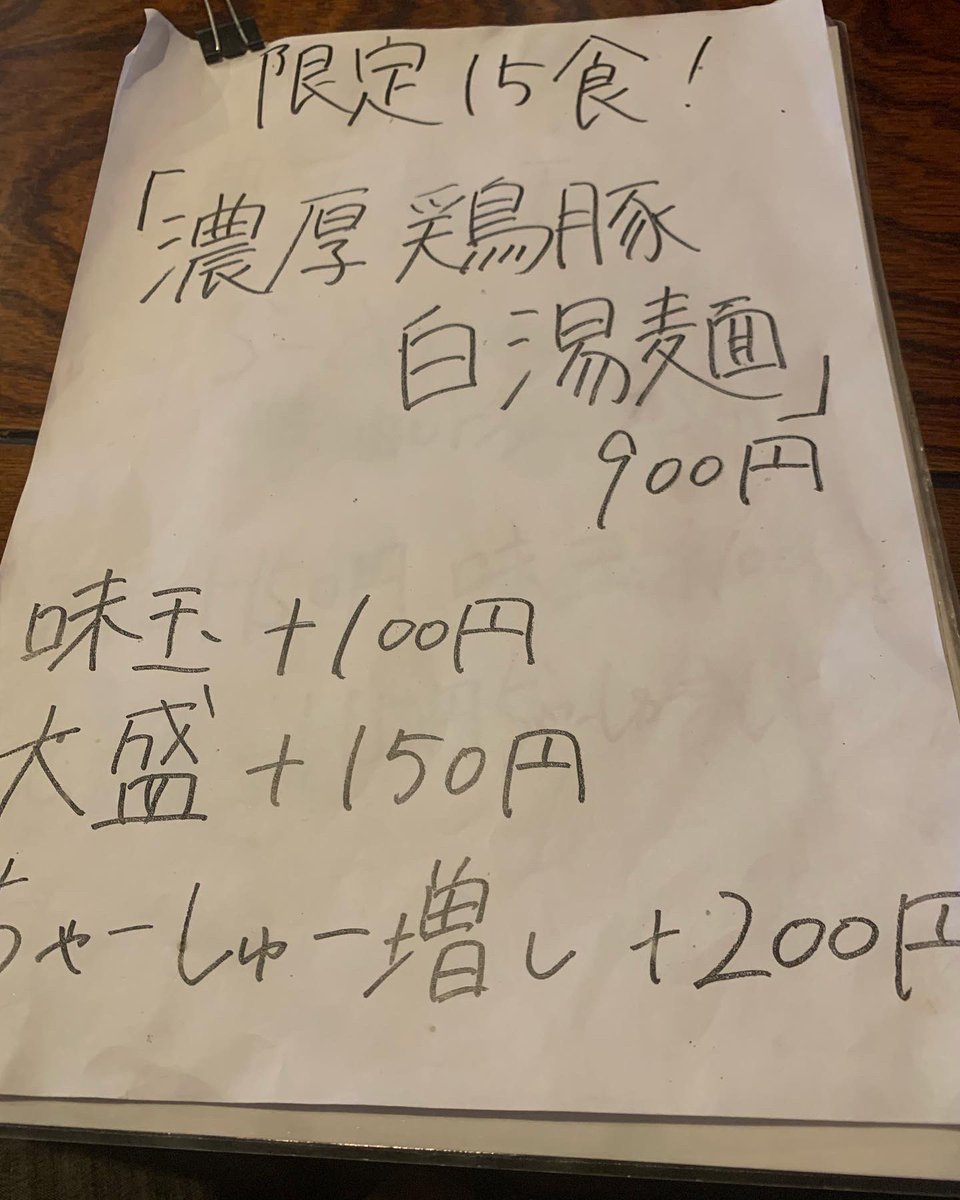 限定15食!
「濃厚鶏豚
白湯麺」
900円
味玉 +100円
大盛 +150円
ちゃーしゅー増し +200円